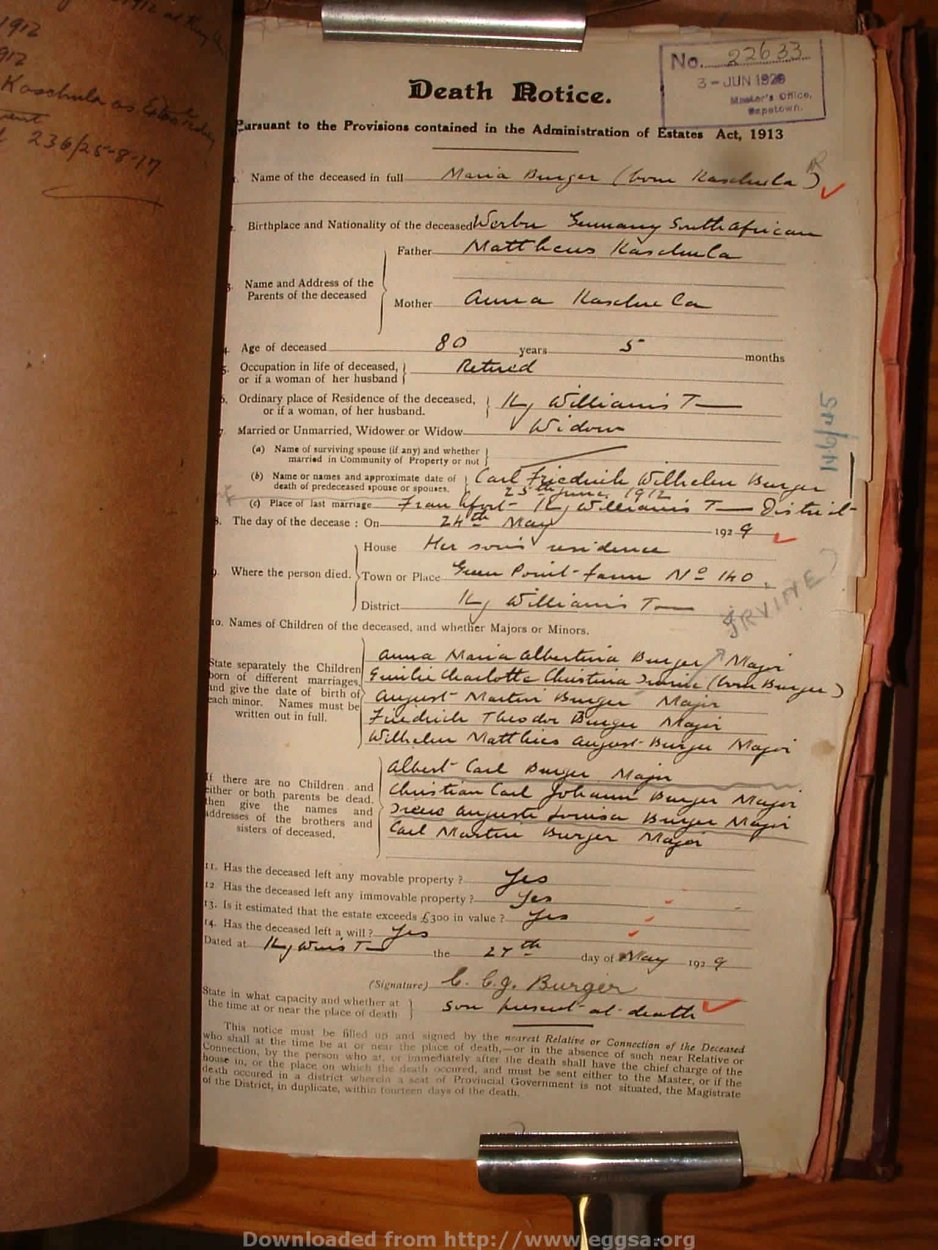 1912
912
Kaschula as Exectrix
236/25-8-17
No. 22633
3 - JUN 1929
Master's Office,
Capetown.
Death Notice.
Pursuant to the Provisions contained in the Administration of Estates Act, 1913
1. Name of the deceased in full Maria Burger (born Kaschula)
2. Birthplace and Nationality of the deceased Werbu Germany South African
3. Name and Address of the Parents of the deceased
Father Mattheus Kaschula
Mother Anna Kaschula
4. Age of deceased 80 years 5 months
5. Occupation in life of deceased, or if a woman of her husband Retired
6. Ordinary place of Residence of the deceased, or if a woman, of her husband. Kg Williams T
7. Married or Unmarried, Widower or Widow Widow
(a) Name of surviving spouse (if any) and whether married in Community of Property or not
(b) Name or names and approximate date of death of predeceased spouse or spouses. Carl Friedrich Wilhelm Burger
23rd June 1912
(c) Place of last marriage Frankfort Kg Williams T District
8. The day of the decease: On 24th May 1929
9. Where the person died.
House Her son's residence
Town or Place Green Point farm No 140.
District Kg Williams Tn
IRVINE
146/45
10. Names of Children of the deceased, and whether Majors or Minors.
State separately the Children born of different marriages, and give the date of birth of each minor. Names must be written out in full.
Anna Maria Albertina Burger Major
Emilie Charlotte Christina Irvine (born Burger)
August Martin Burger Major
Friedrich Theodor Burger Major
Wilhelm Matthies August Burger Major
If there are no Children and either or both parents be dead, then give the names and addresses of the brothers and sisters of deceased.
Albert Carl Burger Major
Christian Carl Johann Burger Major
Irene Auguste Louisa Burger Major
Carl Martin Burger Major
11. Has the deceased left any movable property? Yes
12 Has the deceased left any immovable property? Yes
13. Is it estimated that the estate exceeds £300 in value? Yes
14. Has the deceased left a will? Yes
Dated at Kg Wms T the 27th day of May 1929
(Signature) C. C. J. Burger
State in what capacity and whether at the time at or near the place of death son present at death
This notice must be filled up and signed by the nearest Relative or Connection of the Deceased
who shall at the time be at or near the place of death,—or in the absence of such near Relative or
Connection, by the person who at, or immediately after the death shall have the chief charge of the
house in, or the place on which the death occured, and must be sent either to the Master, or if the
death occured in a district wherein a seat of Provincial Government is not situated, the Magistrate
of the District, in duplicate, within fourteen days of the death.
Downloaded from http://www.eggsa.org